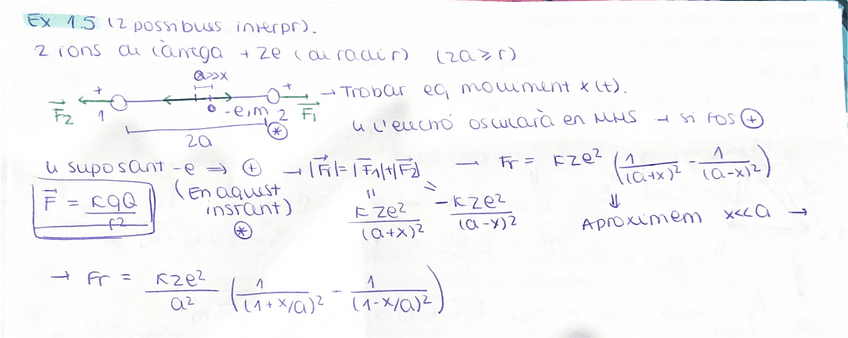 Ex 1.5 (2 possibles interpr).
2 ions de càrrega +Ze (de radi r) (2a ≥ r)
a>>x → Trobar eq moviment x(t).
+ +
F₂ 1 -e, m 2 F₁
* ↳ L'electró oscil·larà en MHS → si fos ⊕
2a
↳ suposant -e ⇒ ⊕ → |Fr| = |F₁|+|F₂| → Fr = KZe² (1/(a+x)² - 1/(a-x)²)
F = KqQ/r² (En aquest instant) * KZe²/(a+x)² -KZe²/(a-x)² ⇓ Aproximem x<<a →
→ Fr = KZe²/a² (1/(1+x/a)² - 1/(1-x/a)²)